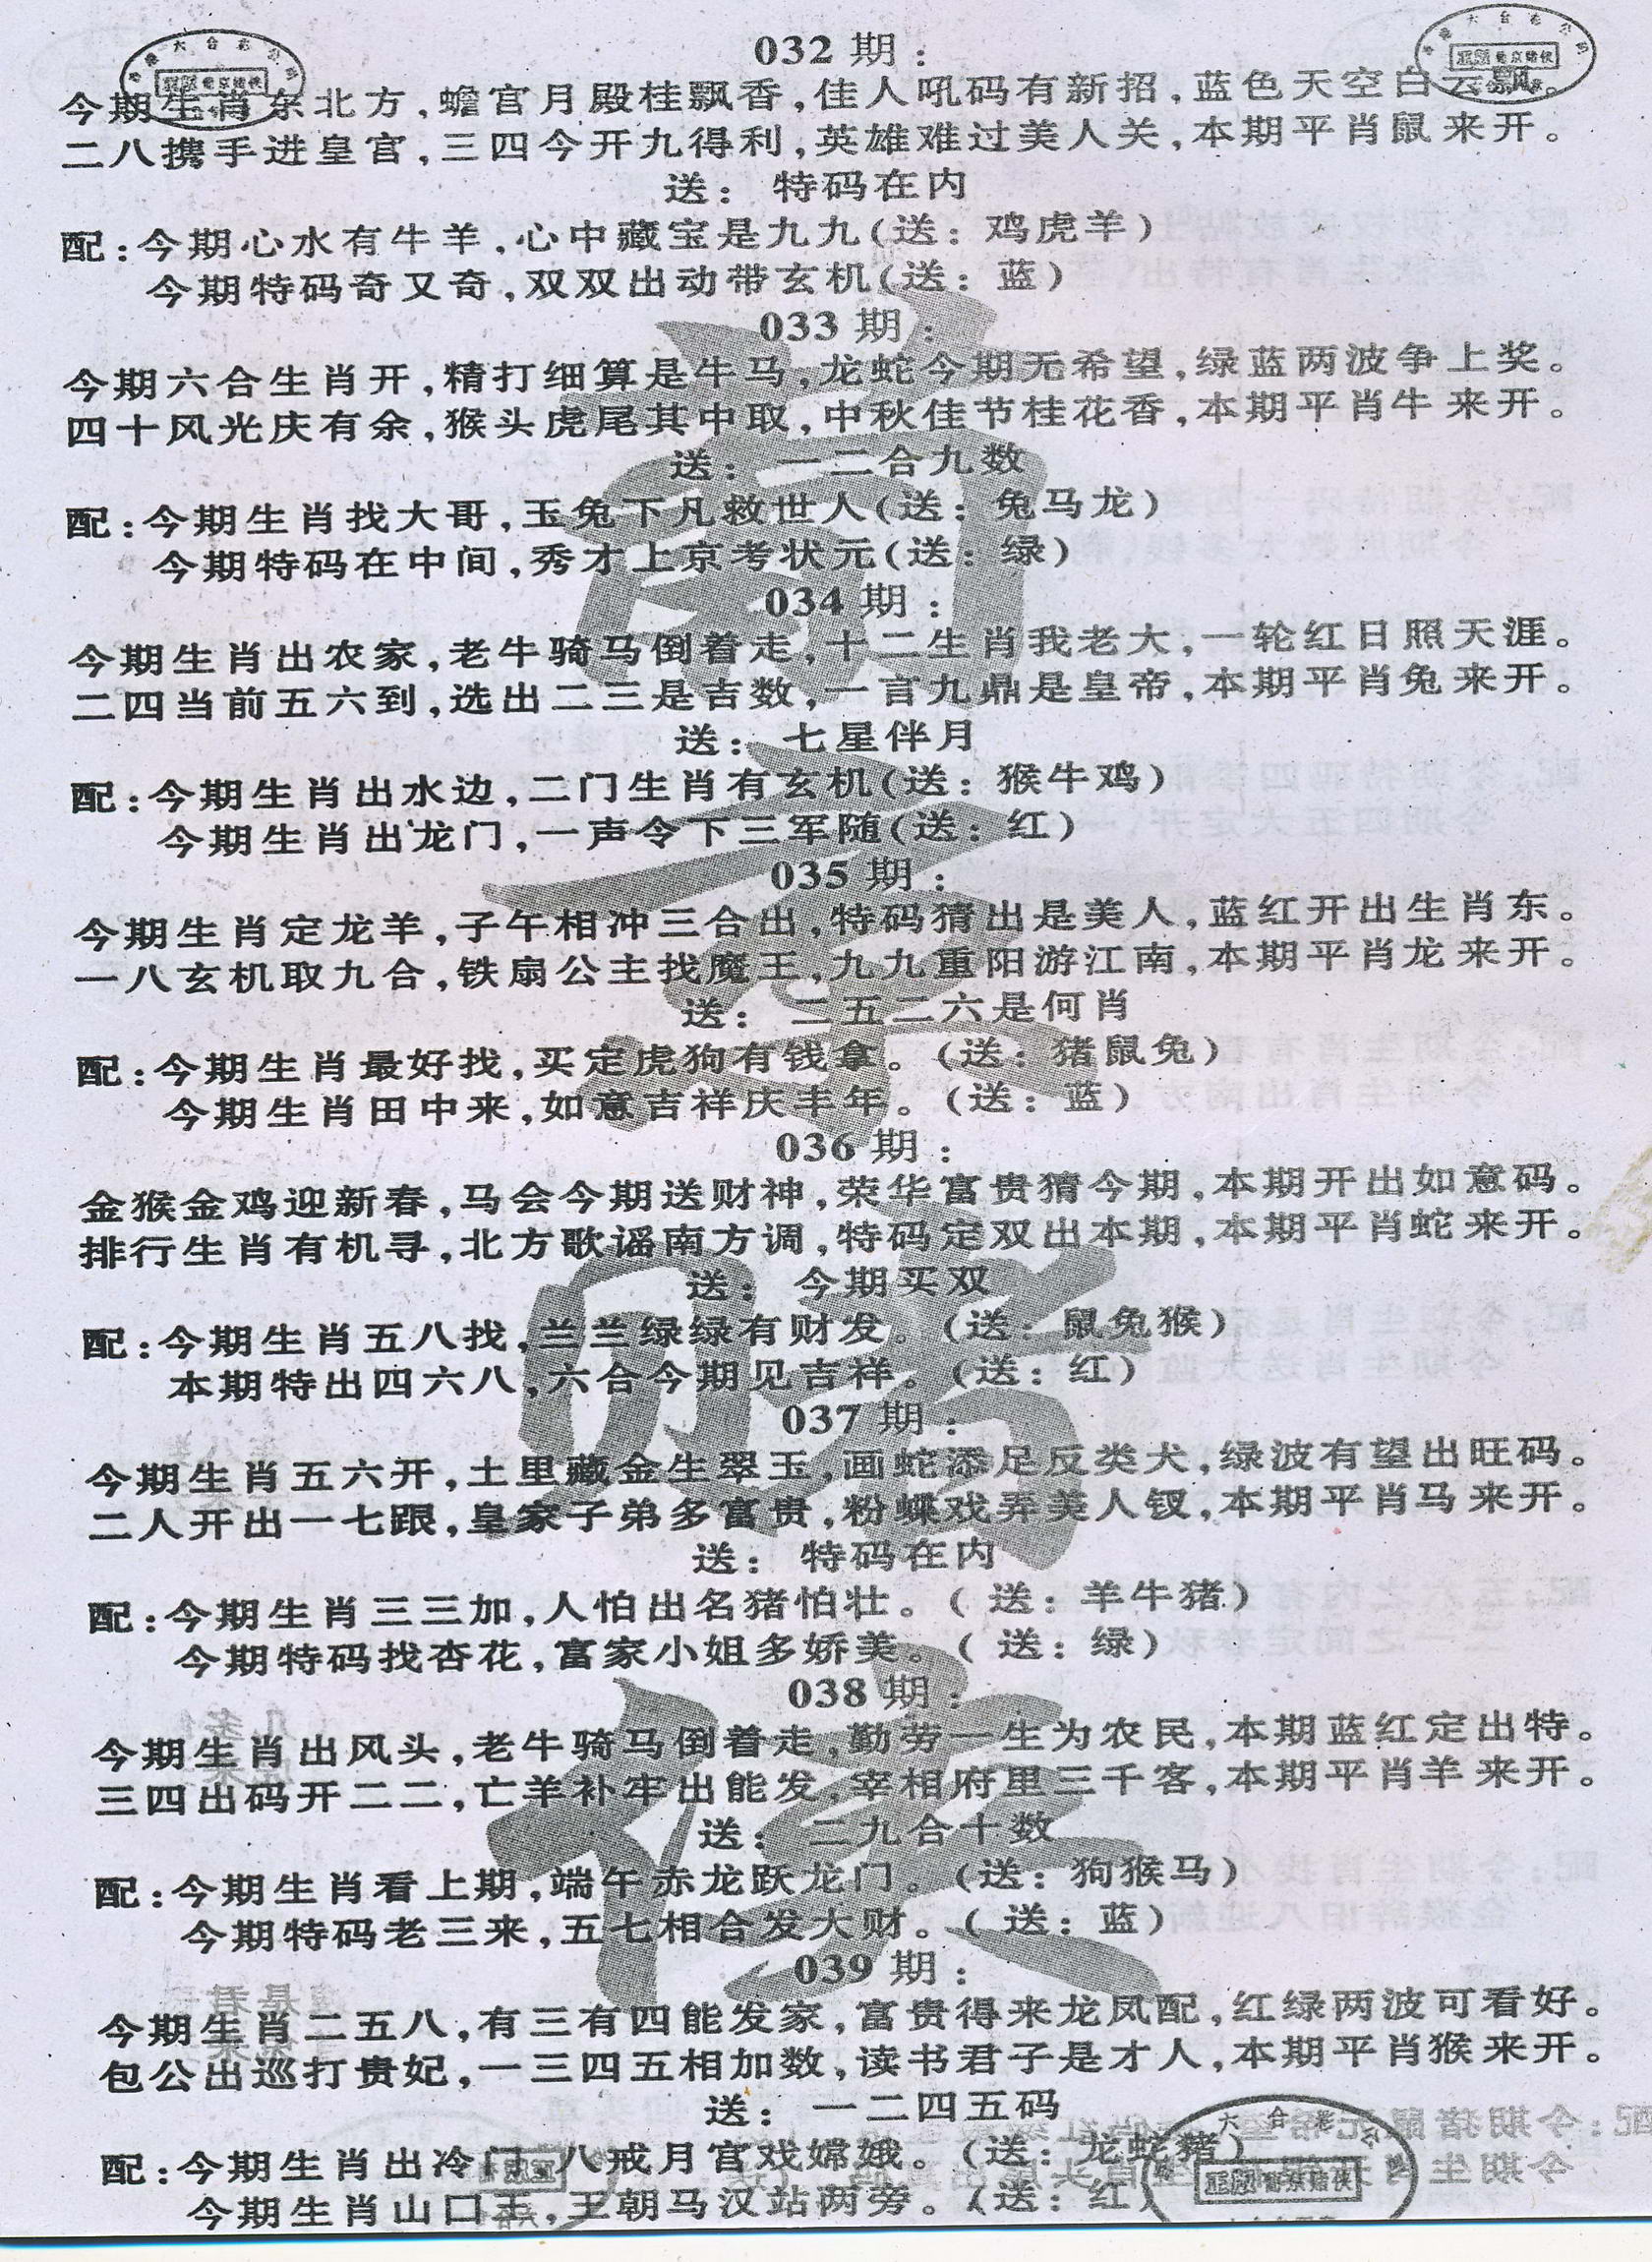 032期:
今期生肖东北方,蟾宫月殿桂飘香,佳人吼码有新招,蓝色天空白云飘。
二八携手进皇官,三四今开九得利,英雄难过美人关,本期平肖鼠来开。
送: 特码在内
配:今期心水有牛羊,心中藏宝是九九(送: 鸡虎羊)
今期特码奇又奇,双双出动带玄机(送: 蓝)
033期:
今期六合生肖开,精打细算是牛马,龙蛇今期无希望,绿蓝两波争上奖。
四十风光庆有余,猴头虎尾其中取,中秋佳节桂花香,本期平肖牛来开。
送: 一二合九数
配:今期生肖找大哥,玉兔下凡救世人(送: 兔马龙)
今期特码在中间,秀才上京考状元(送: 绿)
034期:
今期生肖出农家,老牛骑马倒着走,十二生肖我老大,一轮红日照天涯。
二四当前五六到,选出二三是吉数,一言九鼎是皇帝,本期平肖兔来开。
送: 七星伴月
配:今期生肖出水边,二门生肖有玄机(送: 猴牛鸡)
今期生肖出龙门,一声令下三军随(送: 红)
035期:
今期生肖定龙羊,子午相冲三合出,特码猜出是美人,蓝红开出生肖东。
一八玄机取九合,铁扇公主找魔王,九九重阳游江南,本期平肖龙来开。
送: 二五二六是何肖
配:今期生肖最好找,买定虎狗有钱拿。(送: 猪鼠兔)
今期生肖田中来,如意吉祥庆丰年。(送: 蓝)
036期:
金猴金鸡迎新春,马会今期送财神,荣华富贵猜今期,本期开出如意码。
排行生肖有机寻,北方歌谣南方调,特码定双出本期,本期平肖蛇来开。
送: 今期买双
配:今期生肖五八找,兰兰绿绿有财发。(送: 鼠兔猴)
本期特出四六八,六合今期见吉祥。(送: 红)
037期:
今期生肖五六开,土里藏金生翠玉,画蛇添足反类犬,绿波有望出旺码。
二人开出一七跟,皇家子弟多富贵,粉蝶戏弄美人钗,本期平肖马来开。
送: 特码在内
配:今期生肖三三加,人怕出名猪怕壮。(送: 羊牛猪)
今期特码找杏花,富家小姐多娇美。(送: 绿)
038期:
今期生肖出风头,老牛骑马倒着走,勤劳一生为农民,本期蓝红定出特。
三四出码开二二,亡羊补牢出能发,宰相府里三千客,本期平肖羊来开。
送: 二九合十数
配:今期生肖看上期,端午赤龙跃龙门。(送: 狗猴马)
今期特码老三来,五七相合发大财。(送: 蓝)
039期:
今期生肖二五八,有三有四能发家,富贵得来龙凤配,红绿两波可看好。
包公出巡打贵妃,一三四五相加数,读书君子是才人,本期平肖猴来开。
送: 一二四五码
配:今期生肖出冷门,八戒月官戏嫦娥。(送: 龙蛇猪)
今期生肖山口王,王朝马汉站两旁。(送: 红)